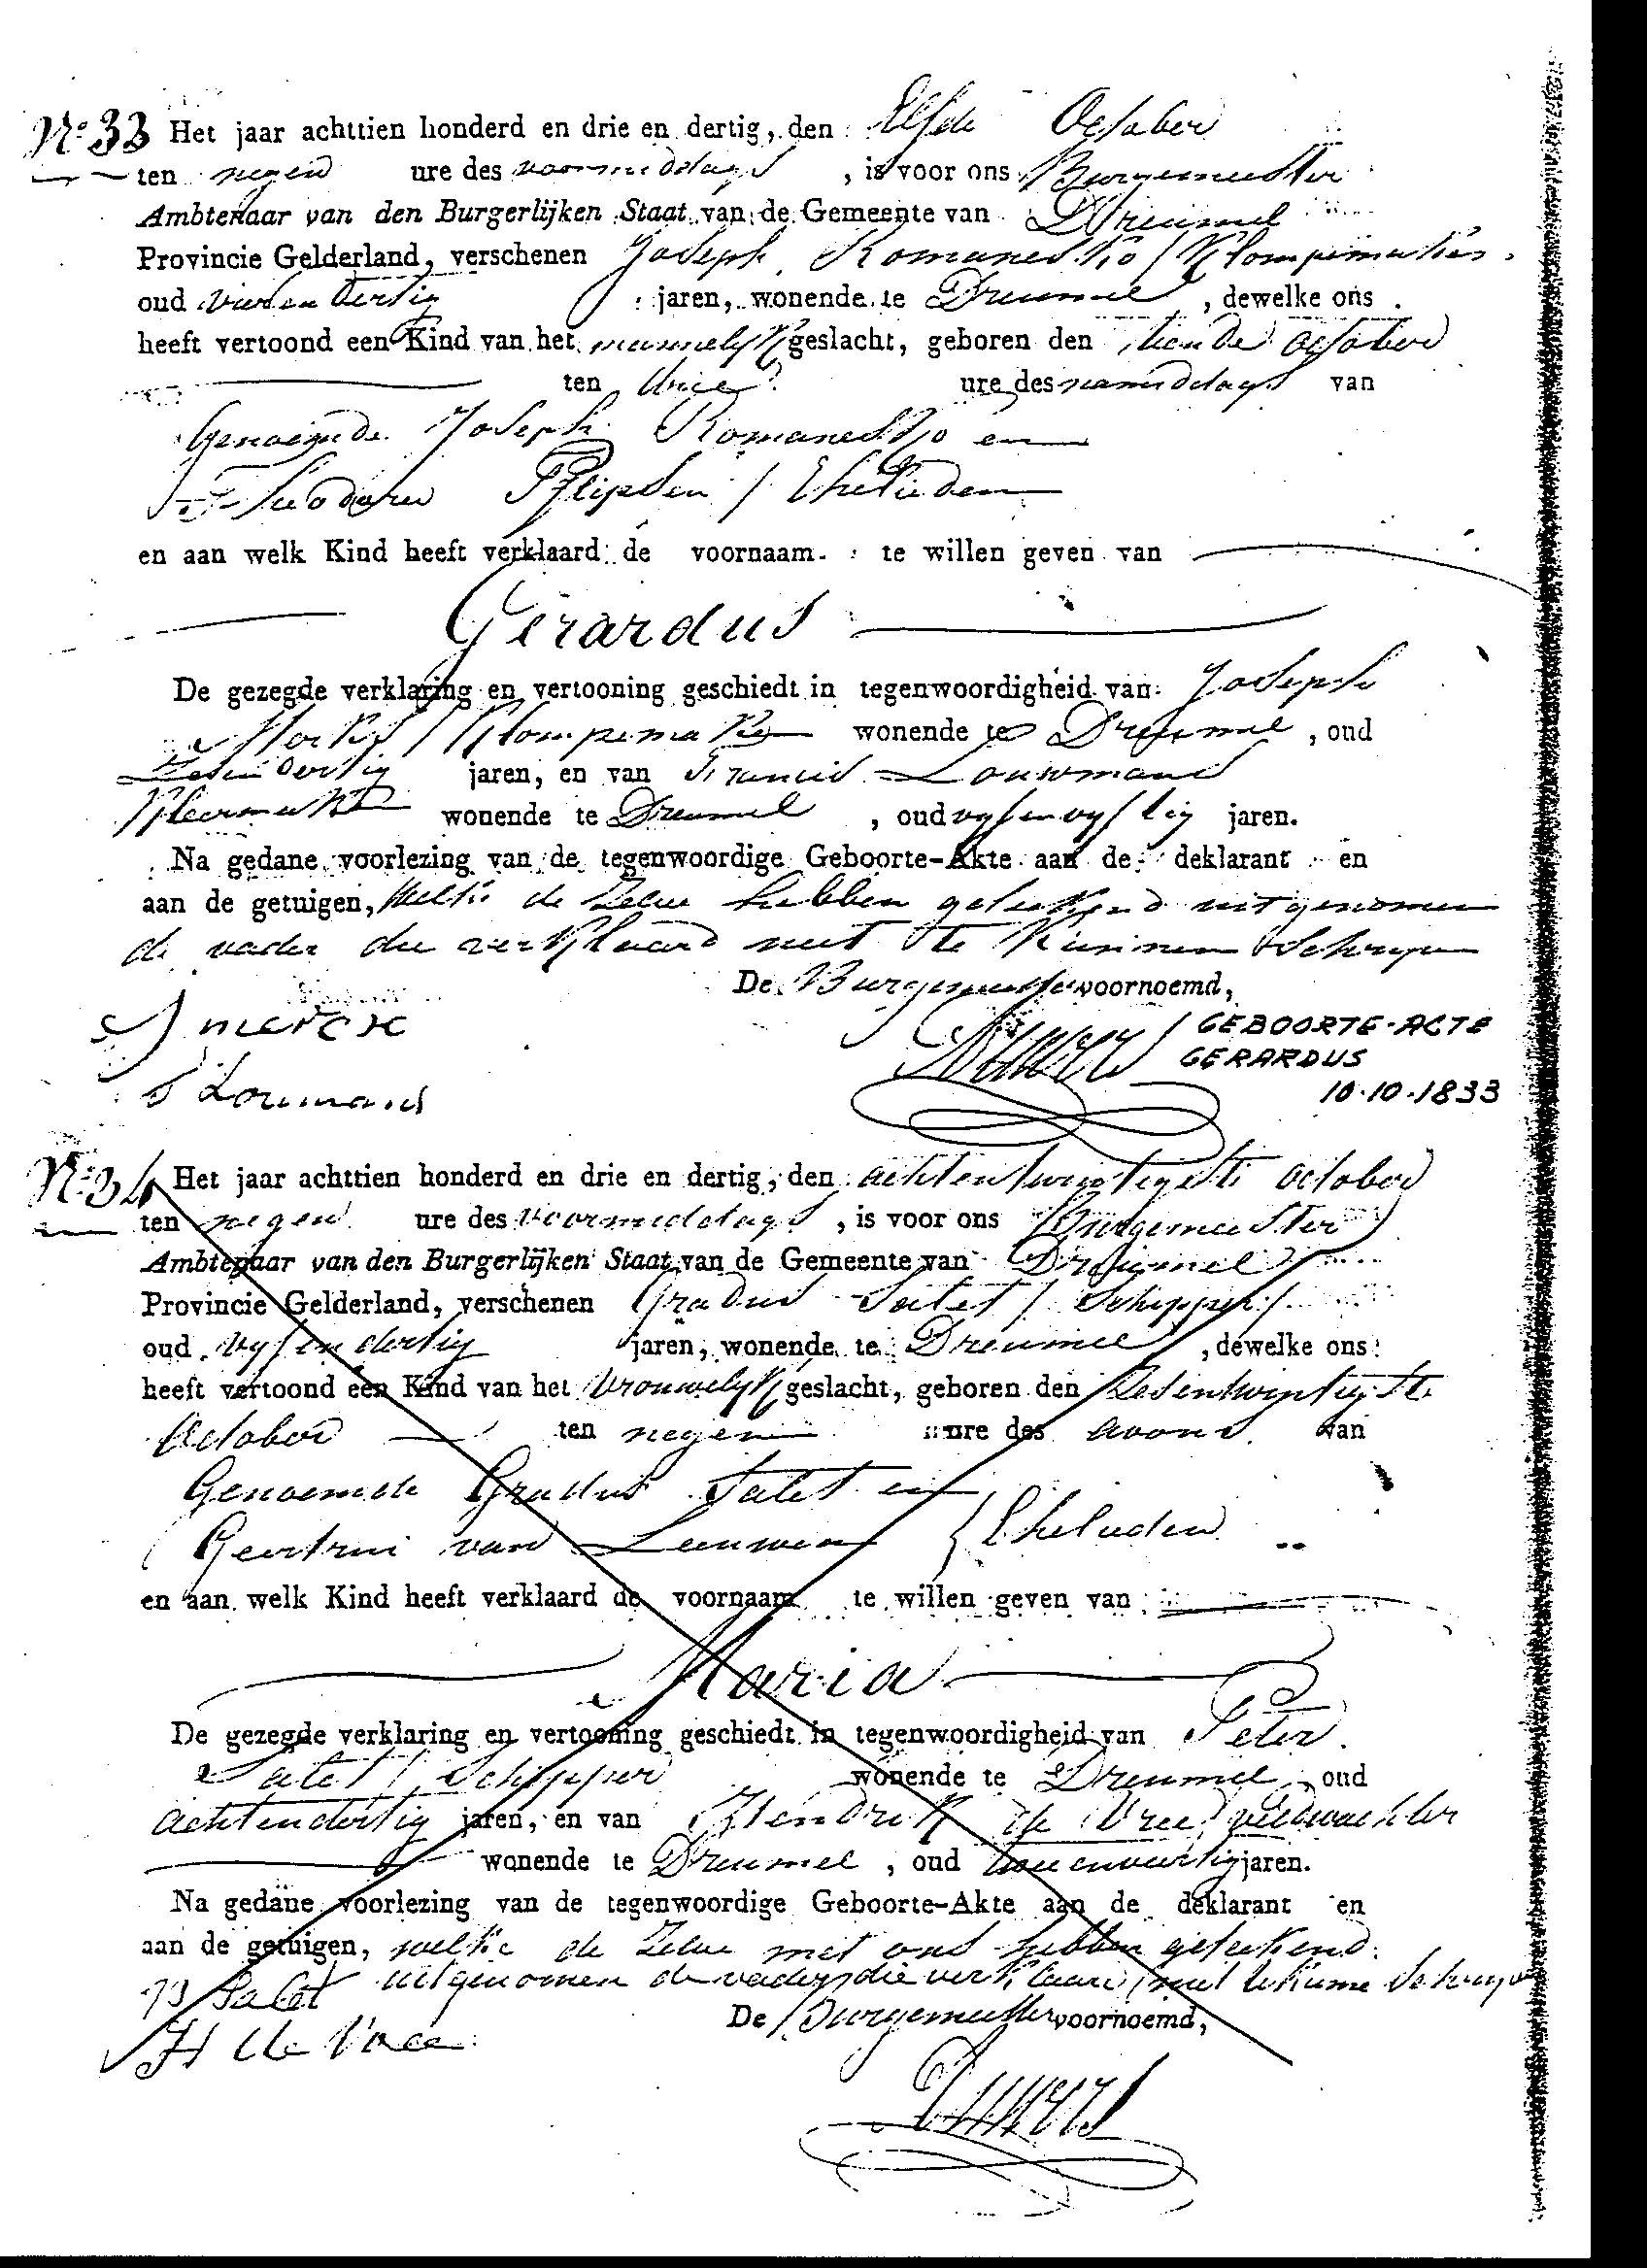 N:o 33 Het jaar achttien honderd en drie en dertig, den Elfde October
ten negen ure des voormiddags, is voor ons Burgemeester
Ambtenaar van den Burgerlijken Staat van de Gemeente van Dreumel
Provincie Gelderland, verschenen Joseph Romanesko / Klompemaker
oud vierendertig jaren, wonende te Dreumel, dewelke ons
heeft vertoond een Kind van het mannelyk geslacht, geboren den tiende october
ten drie ure des namiddags van
Genoemde Joseph Romanesko en
Theodora Flipsen / Ehelieden
en aan welk Kind heeft verklaard de voornaam te willen geven van
Gerardus
De gezegde verklaring en vertooning geschiedt in tegenwoordigheid van Joseph
/ Klompemaker wonende te Dreumel, oud
Zesendertig jaren, en van Francis Louwmans
Kleermaker wonende te Dreumel, oud vyfenvyftig jaren.
Na gedane voorlezing van de tegenwoordige Geboorte-Akte aan de deklarant en
aan de getuigen, welke de Zelve hebben geteekend uitgenomen
de vader die verklaard niet te Kunnen Schryven
De Burgemeester voornoemd,
J merckx
F Loumans
GEBOORTE-ACTE
GERARDUS
10.10.1833
N:o 34 Het jaar achttien honderd en drie en dertig, den achtentwintigste october
ten negen ure des voormiddags, is voor ons Burgemeester
Ambtenaar van den Burgerlijken Staat van de Gemeente van Dreumel
Provincie Gelderland, verschenen Gradus Salet / Schipper /
oud vyfendertig jaren, wonende te Dreumel, dewelke ons
heeft vertoond een Kind van het vrouwelyk geslacht, geboren den Zesentwintigste
October ten negen ure des avonds van
Genoemde Gradus Salet en
Geertrui van Leeuwen } Ehelieden
en aan welk Kind heeft verklaard de voornaam te willen geven van
Maria
De gezegde verklaring en vertooning geschiedt in tegenwoordigheid van Peter
Salet / Schipper wonende te Dreumel, oud
achtendertig jaren, en van Hendrik de Vree / veldwachter
wonende te Dreumel, oud jaren.
Na gedane voorlezing van de tegenwoordige Geboorte-Akte aan de deklarant en
aan de getuigen, welke de Zelve met ons hebben geteekend
uitgenomen de vader die verklaard niet te Kunne Schryven
P Salet
De Burgemeester voornoemd,
H de Vree